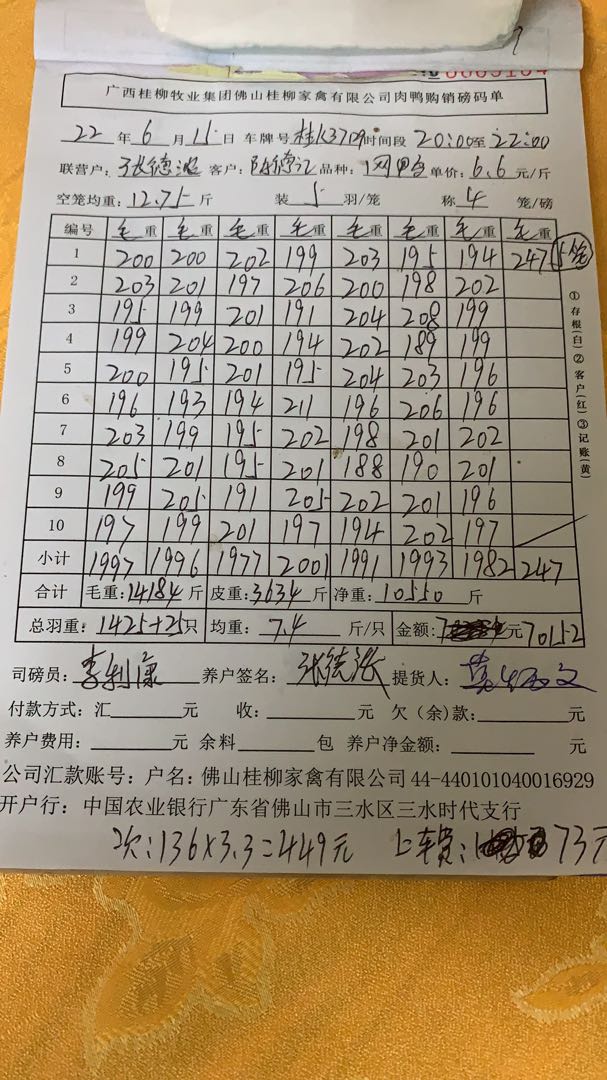 广西桂柳牧业集团佛山桂柳家禽有限公司肉鸭购销磅码单
22年6月15日 车牌号 桂K3709 时间段 20:00至22:00
联营户: 客户: 品种: 单价: 6.6元/斤
空笼均重: 12.75斤 装5羽/笼 称4笼/磅
编号 毛重 毛重 毛重 毛重 毛重 毛重 毛重 毛重
1 200 200 202 199 203 195 194 247 5笼
2 203 201 197 206 200 198 202
3 195 199 201 191 204 208 199
4 199 204 200 194 202 189 199
5 200 195 201 195 204 203 196
6 196 193 194 211 196 206 196
7 203 199 195 202 198 201 202
8 205 201 195 201 188 190 201
9 199 205 191 205 202 201 196
10 197 199 201 197 194 202 197
小计 1997 1996 1977 2001 1991 1993 1982 247
合计 毛重: 14184斤 皮重: 3634斤 净重: 10550斤
总羽重: 1425+25只 均重: 7.4斤/只 金额: 元 70152
①存根(白)②客户(红)③记账(黄)
司磅员: 李利康 养户签名: 提货人:
付款方式: 汇元 收: 元 欠(余)款: 元
养户费用: 元 余料包 养户净金额: 元
公司汇款账号: 户名: 佛山桂柳家禽有限公司 44-440101040016929
开户行: 中国农业银行广东省佛山市三水区三水时代支行
次: 136×3.3=449元 上车费: 73元